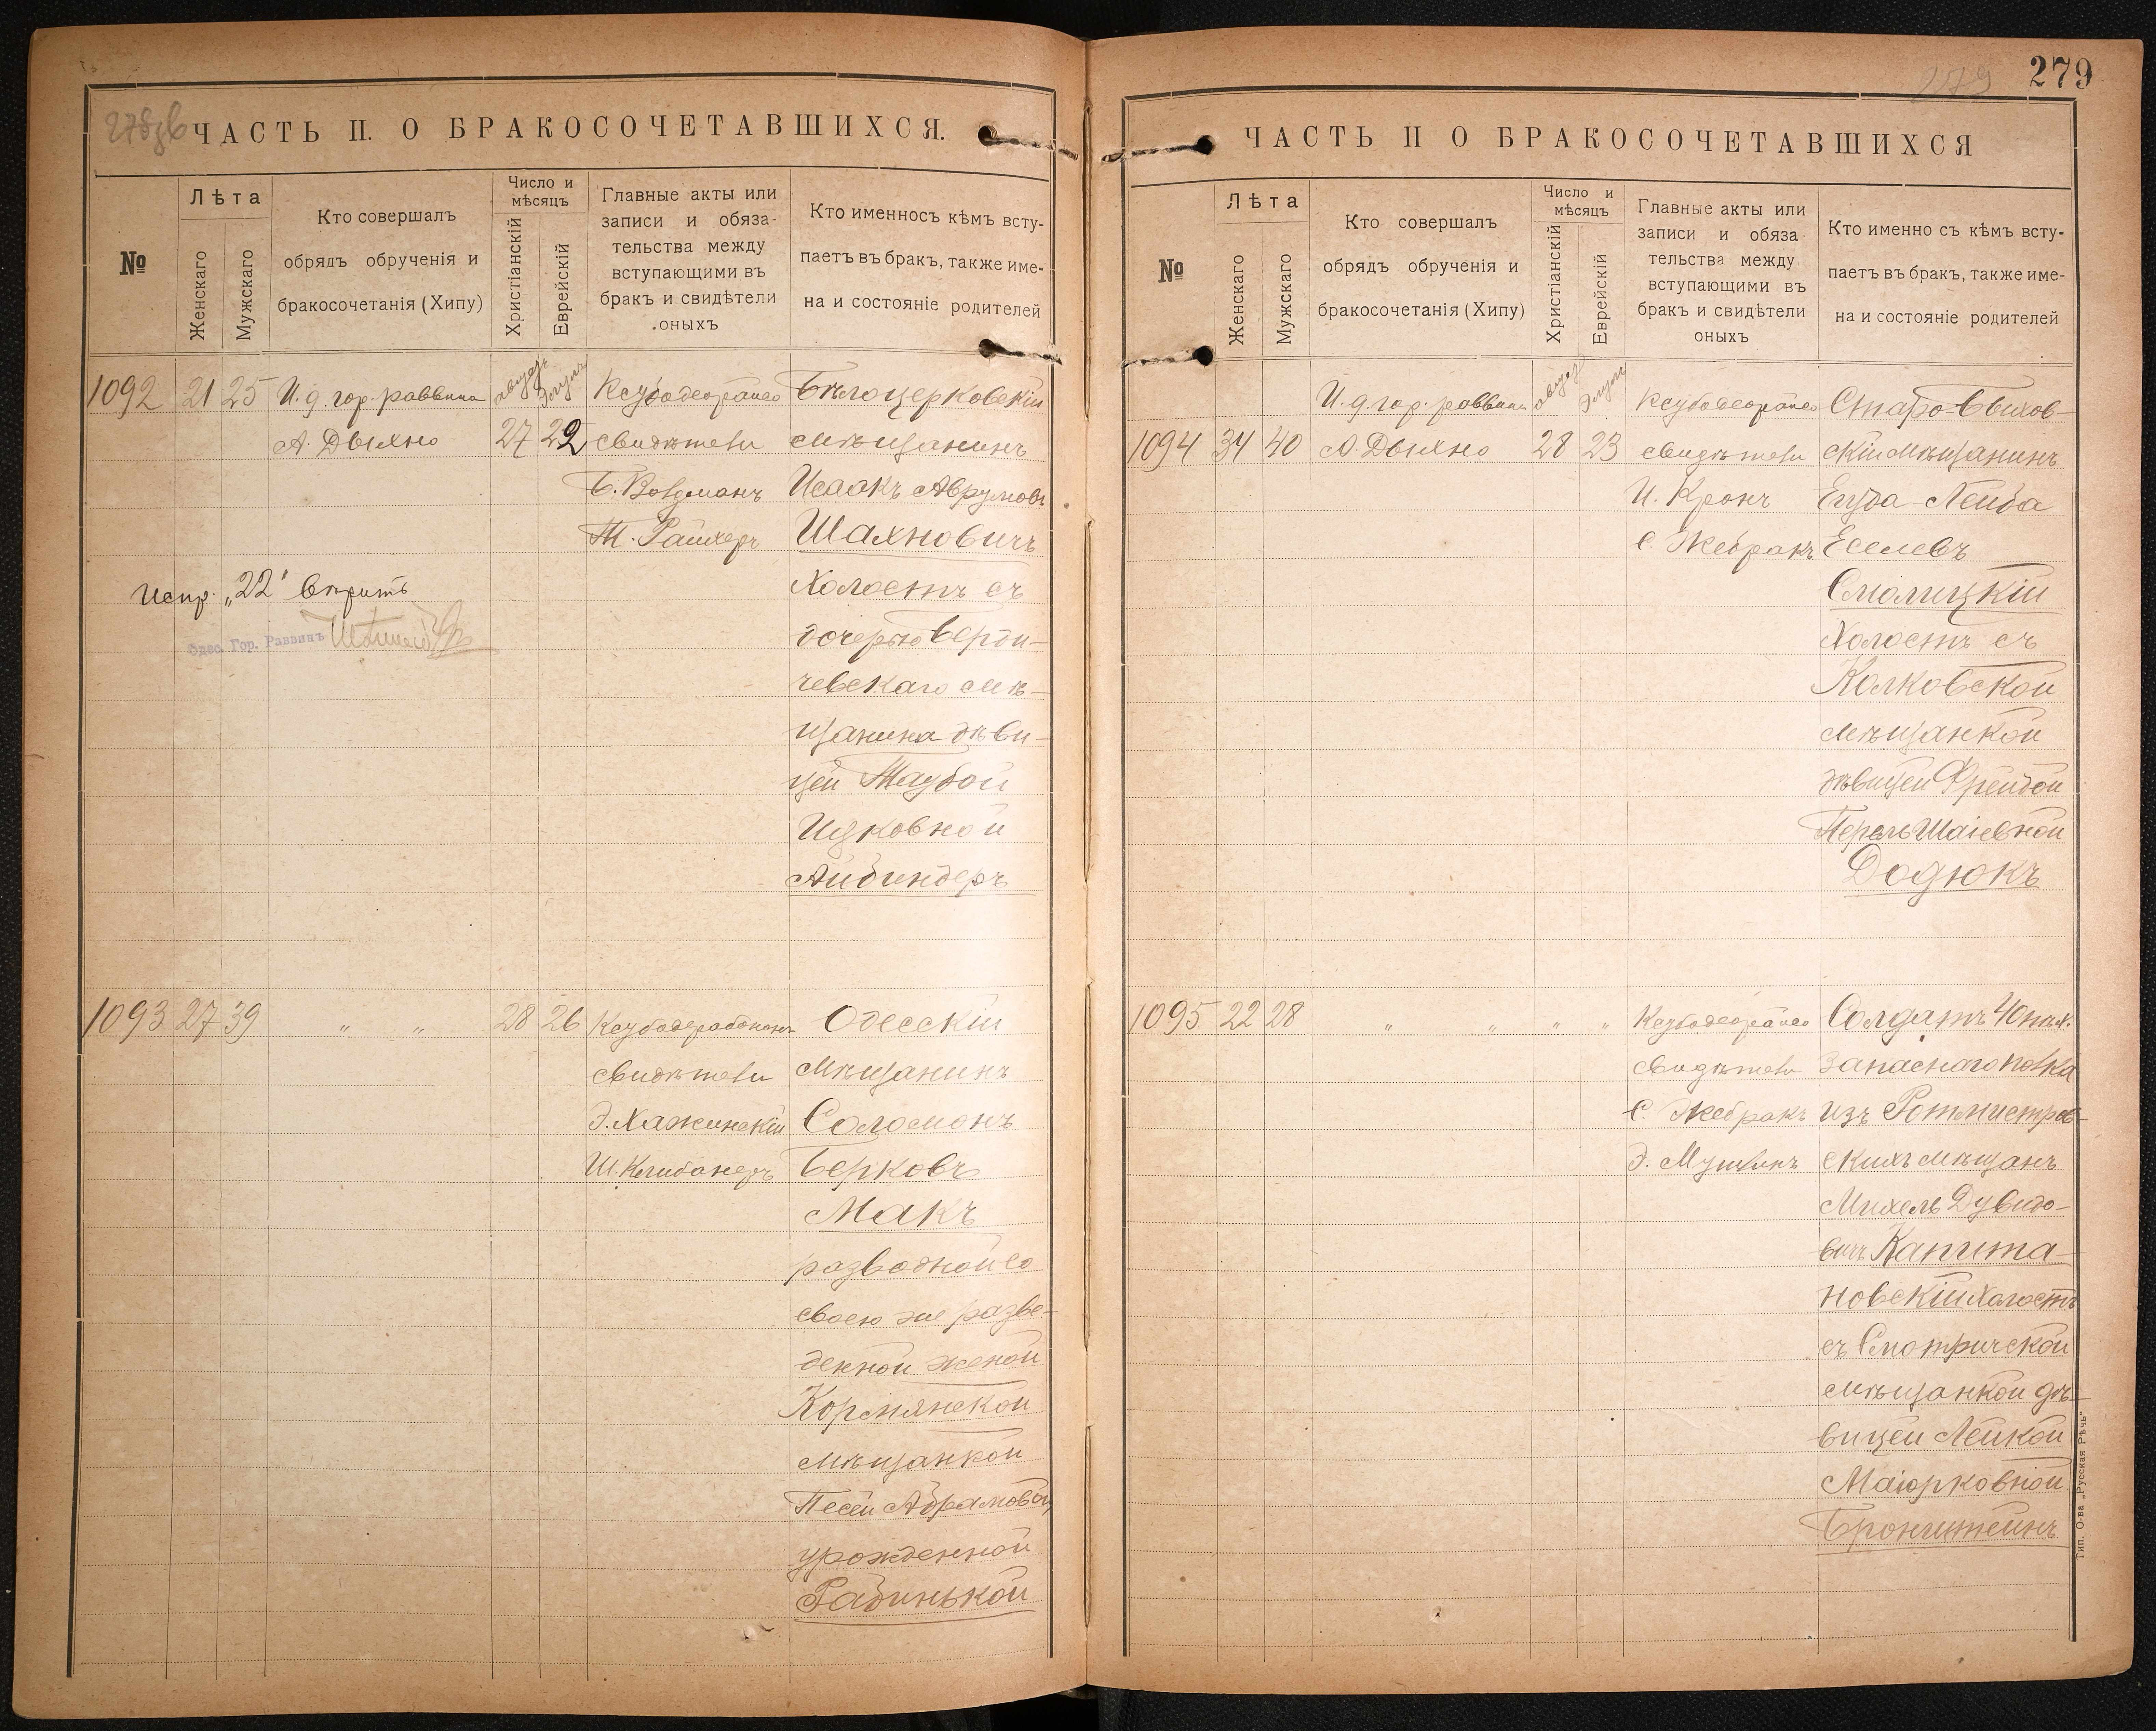 278об
ЧАСТЬ II. О БРАКОСОЧЕТАВШИХСЯ.
№
Лѣта
Женскаго
Мужскаго
Кто совершалъ
обрядъ обрученія и
бракосочетанія (Хипу)
Число и
мѣсяцъ
Христіанскій
Еврейскій
Главные акты или
записи и обяза-
тельства между
вступающими въ
бракъ и свидѣтели
оныхъ
Кто именносъ кѣмъ всту-
паетъ въ бракъ, также име-
на и состояніе родителей
1092 21 25 И. д. гор. раввина
А. Дыхно
августъ 27
Элулъ 22
свидѣтели
Т. Райхеръ
Бѣлоцерковскій
мѣщанинъ
Исаакъ Аврумовъ
Шахновичъ
Холостъ съ
дочерью Берди-
чевскаго мѣ-
щанина дѣви-
цей Таубой
Ицковной
Айбиндеръ
Испр. „22" вѣрить
Одес. Гор. Раввинъ
1093 27 39 „ „ 28 26
свидѣтели
Э. Хажинскій
Ш. Клибанеръ
Одесскій
мѣщанинъ
Соломонъ
Берковъ
Макъ
разводной со
своею же разве-
денной женой
Кормянской
мѣщанкой
Песей Абрамовой,
урожденной
Рабинькой
279
279
ЧАСТЬ II О БРАКОСОЧЕТАВШИХСЯ
№
Лѣта
Женскаго
Мужскаго
Кто совершалъ
обрядъ обрученія и
бракосочетанія (Хипу)
Число и
мѣсяцъ
Христіанскій
Еврейскій
Главные акты или
записи и обяза-
тельства между
вступающими въ
бракъ и свидѣтели
оныхъ
Кто именно съ кѣмъ всту-
паетъ въ бракъ, также име-
на и состояніе родителей
И. д. гор. раввина
1094 34 40 А. Дыхно
августъ 28
Элулъ 23
свидѣтели
И. Кронъ
С. Жебракъ
Старо-Быхов-
скій мѣщанинъ
Лейба
Еселевъ
Смолицкій
Холостъ съ
Колковской
мѣщанкой
дѣвицей Фрейдой
Перель Шаіевной
Додюкъ
1095 22 28 „ „ „ „
свидѣтели
С. Жебракъ
Солдатъ 40 пѣх.
запаснаго полка
изъ Ротмистров-
скихъ мѣщанъ
Михель Дувидо-
вичъ Капита-
новскій Холостъ
съ Смотричской
мѣщанкой дѣ-
вицей Лейкой
Маіорковной
Бронштейнъ
Тип. О-ва „Русская Рѣчь"